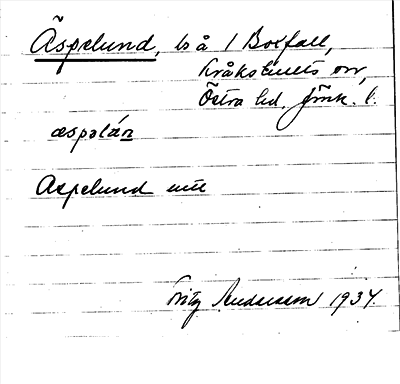 Äspelund, ls å 1 Boxfall,
Kråkshults sn,
Östra hd. Jönk. l.
æspəlán
Aspelund utt
Fritz Andersson 1934.